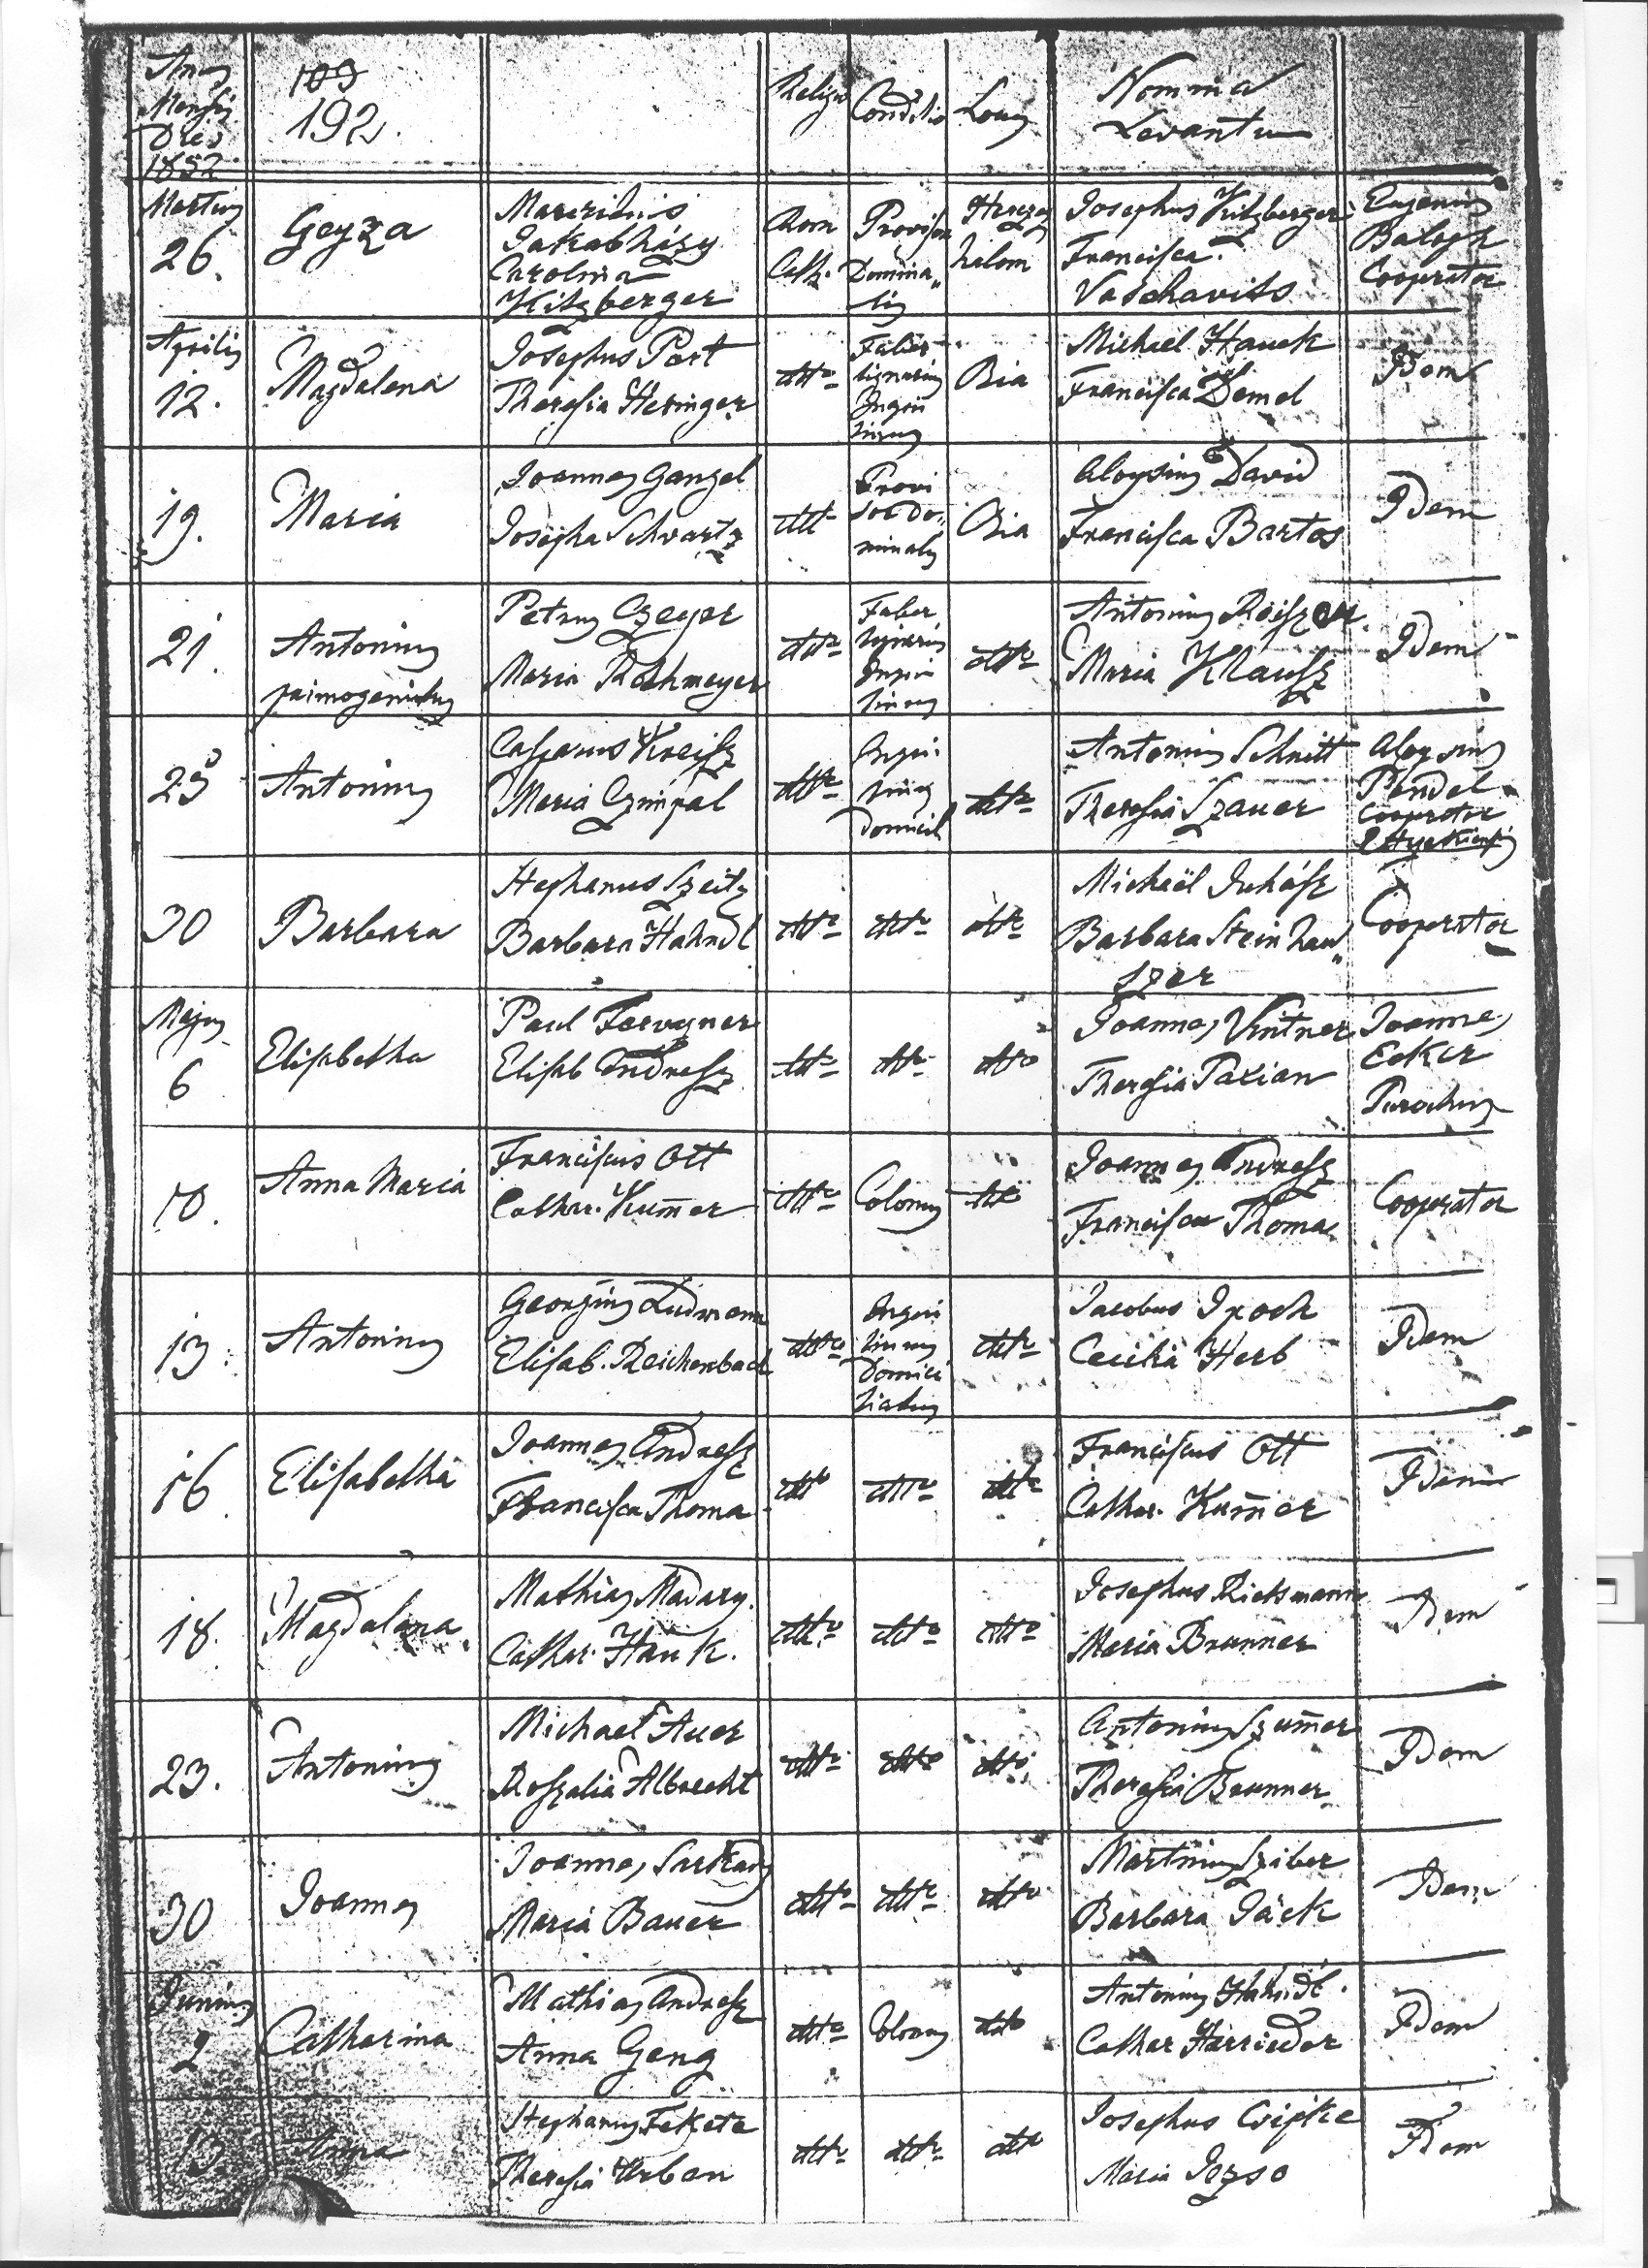 Anus
Mensis
Dies
1852
109
192.
Religio
Conditio
Locus
Nomina
Levantum
Martius
26.
Geyza
Jakabházy
Carolina
Kitzberger
Rom
Cath.
Provisor
Domina„
lis
Herczeg
halom
Josephus Kitzberger
Francisca
Vaschavits
Eugenius
Balogh
Cooperator
Aprilis
12.
Magdalena
Josephus Port
Theresia Heringer
dtto
Faber
lignarius
Inqui
linus
Bia
Michael Hauck
Francisca Demel
Idem
19.
Maria
Joannes Ganzel
Josepha Schvartz
dtto
Provi
sor Do„
minalis
Bia
Aloysius David
Francisca Bartos
Idem
21.
Antonius
primogenitus
Petrus Czeyer
Maria Rothmeyer
dtto
Faber
lignarius
Inqui
linus
dtto
Antonius
Maria Klausz
Idem
25
Antonius
Casparus Kreisz
Maria Czimpal
dtto
Inqui
linus
Domicil
dtto
Antonius Schnitt
Theresia Szauer
Aloysius
Pendel
Cooperator
30
Barbara
Stephanus Szeitz
Barbara Hahndl
dtto
dtto
dtto
Michaël Juhász
Barbara Steinhau„
szer
Cooperator
Majus
6
Elisabetha
Paul
Elisab Andresz
dtto
dtto
dtto
Joannes Vintner
Theresia Paxian
Joannes
Ecker
Parochus
10.
Anna Maria
Franciscus Ott
Cathar. Kum̄er
dtto
Colonus
dtto
Joannes Andresz
Francisca Thoma
Cooperator
13.
Antonius
Georgius Ludmann
Elisab. Reichenbach
dtto
Inqui
linus
Domici
liatus
dtto
Jacobus Ipoch
Cecilia Herb
Idem
16.
Elisabetha
Joannes Andresz
Francisca Thoma
dtto
dtto
dtto
Franciscus Ott
Cathar. Kum̄er
Idem
18.
Magdalena
Mathias Madary.
Cathar. Hauk.
dtto
dtto
dtto
Josephus Rietsmann
Maria Brunner
Idem
23.
Antonius
Michael Auer
Roszalia Albrecht
dtto
dtto
dtto
Antonius Szum̄er
Theresia Brunner
Idem
30
Joannes
Joannes Sarkady
Maria Bauer
dtto
dtto
dtto
Martinus Sziber
Barbara Jäck
Idem
Junius
2
Catharina
Mathias Andresz
Anna Geng
dtto
Colonus
dtto
Antonius Hahndl.
Cathar Harrieder
Idem
13.
Anna
Stephanus Fekete
Theresia Urban
dtto
dtto
dtto
Josephus Csipke
Maria Jozso
Idem